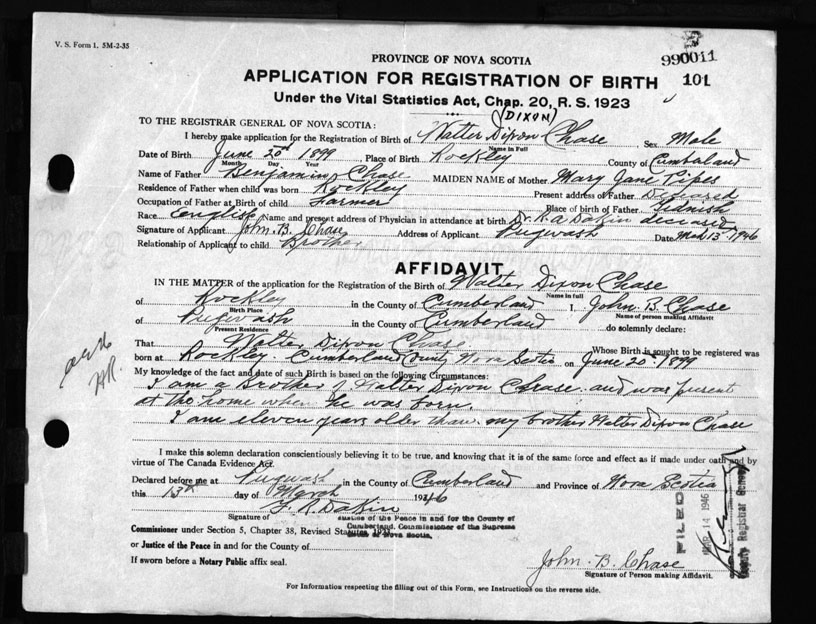 V. S. Form 1. 5M-2-35
990011
PROVINCE OF NOVA SCOTIA
APPLICATION FOR REGISTRATION OF BIRTH 101
Under the Vital Statistics Act, Chap. 20, R. S. 1923
(DIXON)
TO THE REGISTRAR GENERAL OF NOVA SCOTIA:
I hereby make application for the Registration of Birth of Walter Dixon Chase Sex Male
Name in Full
Date of Birth June 20th 1899 Place of Birth Rockley County of Cumberland
Month Day Year
Name of Father Benjamin Chase MAIDEN NAME of Mother Mary Jane Pipes
Residence of Father when child was born Rockley Present address of Father
Occupation of Father at Birth of child Farmer Place of birth of Father
Race English Name and present address of Physician in attendance at birth Dr. Dakin deceased
Signature of Applicant John. B. Chase Address of Applicant Pugwash Date Mch 13th 1946
Relationship of Applicant to child Brother
AFFIDAVIT
IN THE MATTER of the application for the Registration of the Birth of Walter Dixon Chase
Name in full
of Rockley in the County of Cumberland I, John. B. Chase
Birth Place Name of person making Affidavit
of Pugwash in the County of Cumberland do solemnly declare:
Present Residence
That Walter Dixon Chase Whose Birth is sought to be registered was
born at Rockley Cumberland County Nova Scotia on June 20th 1899
My knowledge of the fact and date of such Birth is based on the following Circumstances:
I am a Brother of Walter Dixon Chase and was present
at the home when he was born.
I am eleven years older than my brother Walter Dixon Chase
I make this solemn declaration conscientiously believing it to be true, and knowing that it is of the same force and effect as if made under oath and by
virtue of The Canada Evidence Act.
Declared before me at Pugwash in the County of Cumberland and Province of Nova Scotia
this 13th day of March 1946
F. R. Dakin
Signature of Justice of the Peace in and for the County of
Cumberland. Commissioner of the Supreme
Court of Nova Scotia.
Commissioner under Section 5, Chapter 38, Revised Statutes, 1923
or Justice of the Peace in and for the County of
If sworn before a Notary Public affix seal.
John. B. Chase
Signature of Person making Affidavit.
For Information respecting the filling out of this Form, see Instructions on the reverse side.
FILED
MAR 14 1946
Deputy Registrar General